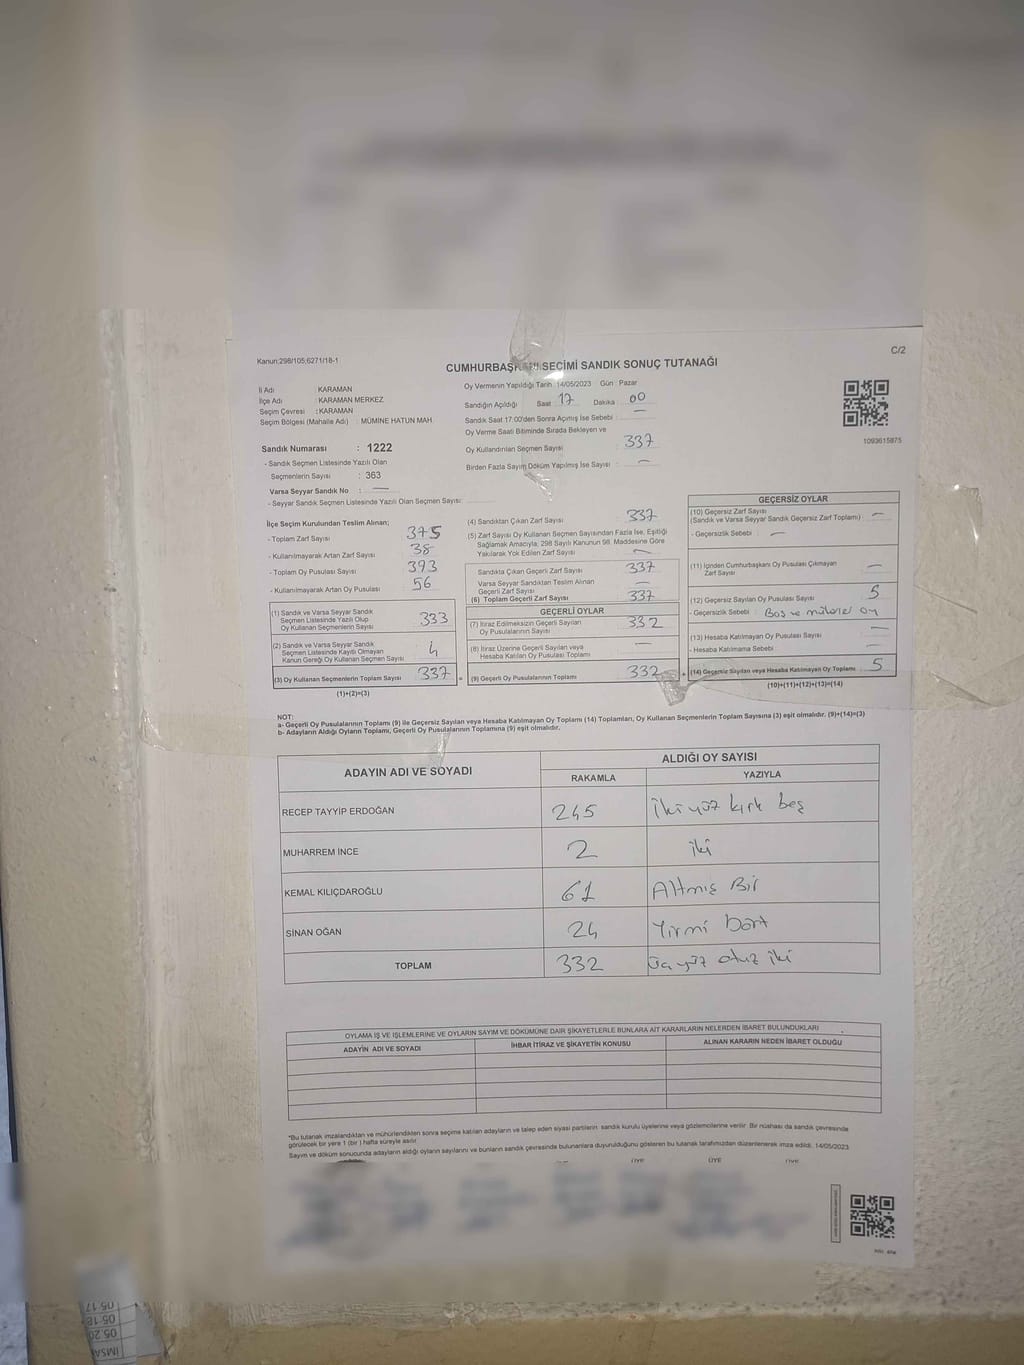 Kanun:298/105;6271/18-1
C/2
CUMHURBAŞKANI SEÇİMİ SANDIK SONUÇ TUTANAĞI
İl Adı : KARAMAN
İlçe Adı : KARAMAN MERKEZ
Seçim Çevresi : KARAMAN
Seçim Bölgesi (Mahalle Adı) : MÜMİNE HATUN MAH
Oy Vermenin Yapıldığı Tarih :14/05/2023 Gün : Pazar
Sandığın Açıldığı Saat 17 Dakika 00
Sandık Saat 17:00'den Sonra Açımış İse Sebebi : —
Oy Verme Saati Bitiminde Sırada Bekleyen ve
Oy Kullandırılan Seçmen Sayısı : 337
Birden Fazla Sayım Döküm Yapılmış İse Sayısı : —
1093615875
Sandık Numarası : 1222
- Sandık Seçmen Listesinde Yazılı Olan
Seçmenlerin Sayısı : 363
Varsa Seyyar Sandık No : —
- Seyyar Sandık Seçmen Listesinde Yazılı Olan Seçmen Sayısı:
İlçe Seçim Kurulundan Teslim Alınan;
- Toplam Zarf Sayısı 375
- Kullanılmayarak Artan Zarf Sayısı 38
- Toplam Oy Pusulası Sayısı 393
- Kullanılmayarak Artan Oy Pusulası 56
(1) Sandık ve Varsa Seyyar Sandık
Seçmen Listesinde Yazılı Olup
Oy Kullanan Seçmenlerin Sayısı 333
(2) Sandık ve Varsa Seyyar Sandık
Seçmen Listesinde Kayıtlı Olmayan
Kanun Gereği Oy Kullanan Seçmen Sayısı 4
(3) Oy Kullanan Seçmenlerin Toplam Sayısı 337
(1)+(2)=(3)
(4) Sandıktan Çıkan Zarf Sayısı 337
(5) Zarf Sayısı Oy Kullanan Seçmen Sayısından Fazla İse, Eşitliği
Sağlamak Amacıyla, 298 Sayılı Kanunun 98. Maddesine Göre
Yakılarak Yok Edilen Zarf Sayısı —
Sandıkta Çıkan Geçerli Zarf Sayısı 337
Varsa Seyyar Sandıktan Teslim Alınan
Geçerli Zarf Sayısı —
(6) Toplam Geçerli Zarf Sayısı 337
GEÇERLİ OYLAR
(7) İtiraz Edilmeksizin Geçerli Sayılan
Oy Pusulalarının Sayısı 332
(8) İtiraz Üzerine Geçerli Sayılan veya
Hesaba Katılan Oy Pusulası Toplamı —
(9) Geçerli Oy Pusulalarının Toplamı 332
GEÇERSİZ OYLAR
(10) Geçersiz Zarf Sayısı
(Sandık ve Varsa Seyyar Sandık Geçersiz Zarf Toplamı) —
- Geçersizlik Sebebi : —
(11) İçinden Cumhurbaşkanı Oy Pusulası Çıkmayan
Zarf Sayısı —
(12) Geçersiz Sayılan Oy Pusulası Sayısı 5
- Geçersizlik Sebebi : Boş ve oy
(13) Hesaba Katılmayan Oy Pusulası Sayısı —
- Hesaba Katılmama Sebebi : —
(14) Geçersiz Sayılan veya Hesaba Katılmayan Oy Toplamı 5
(10)+(11)+(12)+(13)=(14)
NOT:
a- Geçerli Oy Pusulalarının Toplamı (9) ile Geçersiz Sayılan veya Hesaba Katılmayan Oy Toplamı (14) Toplamları, Oy Kullanan Seçmenlerin Toplam Sayısına (3) eşit olmalıdır. (9)+(14)=(3)
b- Adayların Aldığı Oyların Toplamı, Geçerli Oy Pusulalarının Toplamına (9) eşit olmalıdır.
ADAYIN ADI VE SOYADI
ALDIĞI OY SAYISI
RAKAMLA YAZIYLA
RECEP TAYYİP ERDOĞAN 245 İki yüz kırk beş
MUHARREM İNCE 2 iki
KEMAL KILIÇDAROĞLU 61 Altmış Bir
SİNAN OĞAN 24 Yirmi Dört
TOPLAM 332 üç yüz otuz iki
OYLAMA İŞ VE İŞLEMLERİNE VE OYLARIN SAYIM VE DÖKÜMÜNE DAİR ŞİKAYETLERLE BUNLARA AİT KARARLARIN NELERDEN İBARET BULUNDUKLARI
ADAYIN ADI VE SOYADI İHBAR İTİRAZ VE ŞİKAYETİN KONUSU ALINAN KARARIN NEDEN İBARET OLDUĞU
*Bu tutanak imzalandıktan ve mühürlendikten sonra seçime katılan adayların ve talep eden siyasi partilerin sandık kurulu üyelerine veya gözlemcilerine verilir. Bir nüshası da sandık çevresinde
görülecek bir yere 1 (bir ) hafta süreyle asılır.
Sayım ve döküm sonucunda adayların aldığı oyların sayılarını ve bunların sandık çevresinde bulunanlara duyurulduğunu gösteren bu tutanak tarafımızdan düzenlenerek imza edildi. 14/05/2023
ÜYE ÜYE ÜYE
05:17
05:18
05:20
İMSA